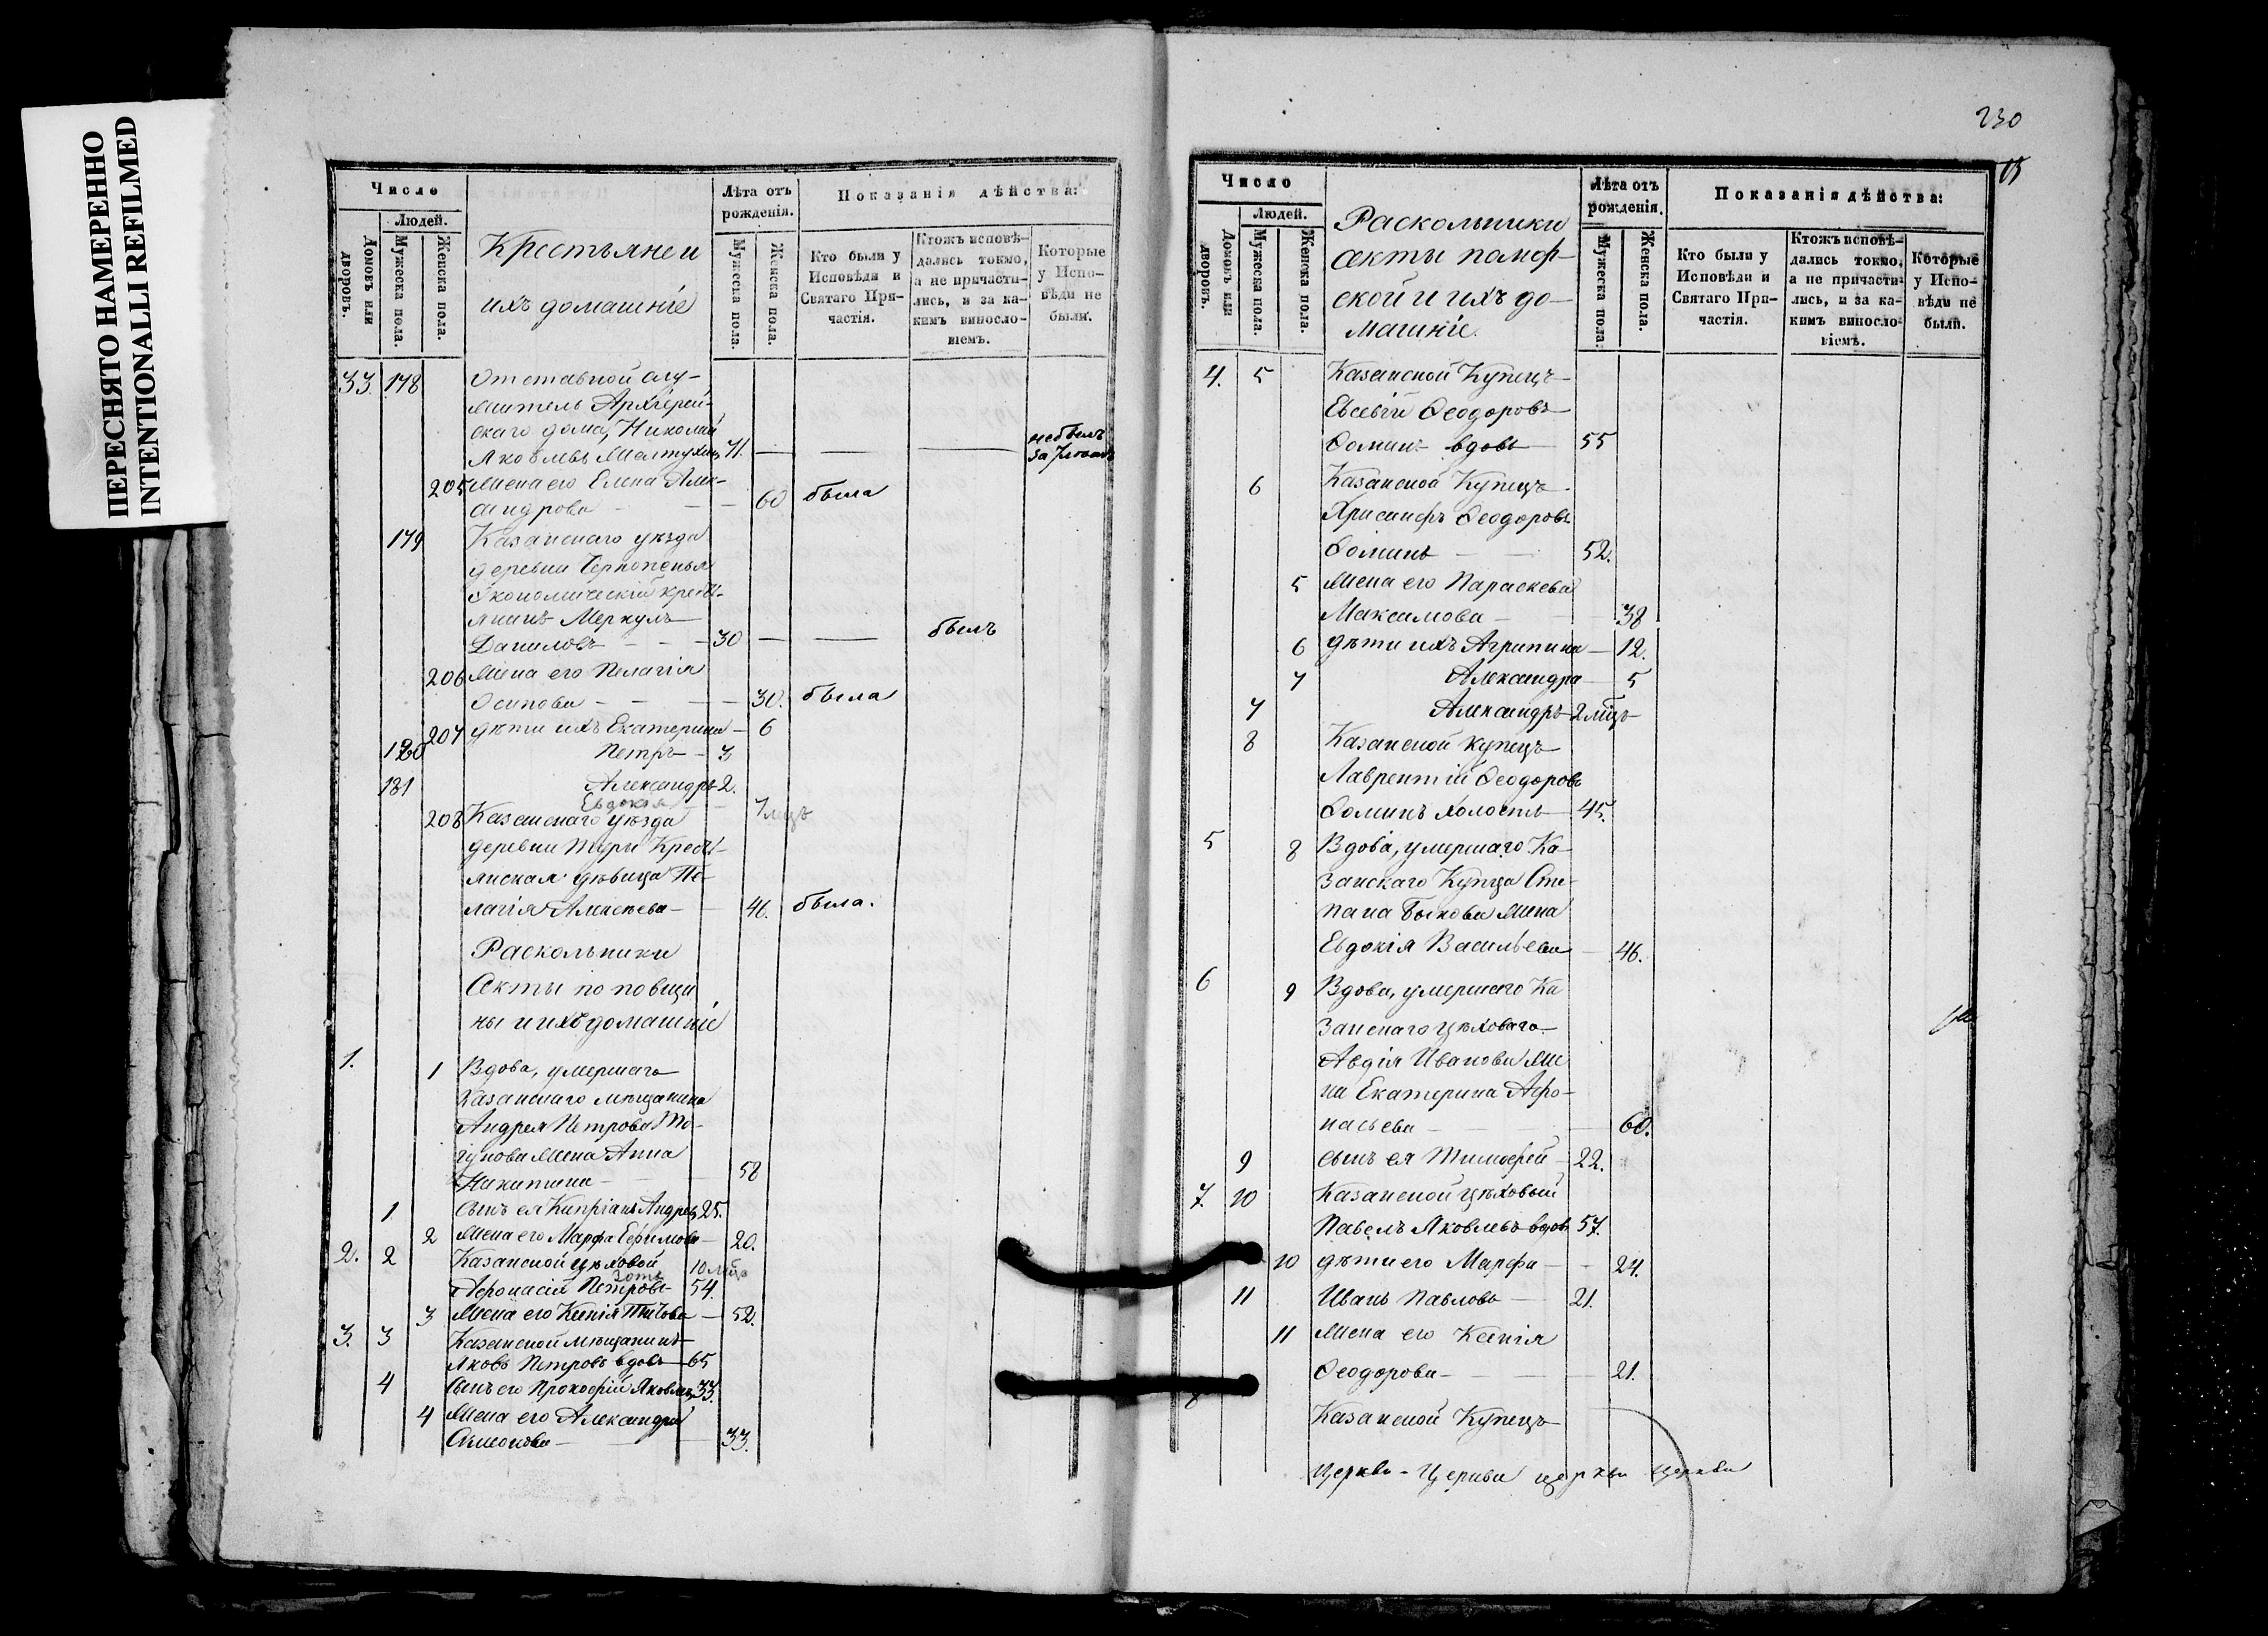 ПЕРЕСНЯТО НАМЕРЕННО
INTENTIONALLI REFILMED
Число
Людей.
Домовъ или дворовъ.
Мужеска пола.
Женска пола.
Крестьяне и
ихъ домашніе
Лѣта отъ рожденія.
Мужеска пола.
Женска пола.
Показанія дѣйства:
Кто были у Исповѣди и Святаго Причастія.
Ктожъ исповѣ-
дались токмо,
а не причасти-
лись, и за ка-
кимъ винослo-
віемъ.
Которые у Испо-
вѣди не были.
33. 178 Отставной слу-
житель Архіерей-
скаго дома, Николай
Яковлевъ 71. — — — не былъ
205 Жена его Елена Алек-
сандрова — — 60 была
179 Казанскаго уѣзда
деревни Чернопенья
Экономическій кресть-
янинъ Меркулъ
Даниловъ — — 30 — — былъ
206 Жена его Пелагія
Осипова — — — 30. была
207 дѣти ихъ Екатерина — 6
180 Петръ — 3
181 Александръ 2.
Евдокія — — 7 мцъ
208 Казанскаго уѣзда
деревни Тури Кресть-
янская дѣвица Пе-
лагія Алексѣева — 46. была.
Раскольники
Секты поповщи
ны и ихъ домашніе
1. 1 Вдова, умершаго
Казанскаго мѣщанина
Андрея Петрова
жена Анна
Никитина — 58
1 Сынъ ея Кипріанъ Андреев 25.
2 Жена его Марфа Ефимова — 20.
2. 2 Казанской цѣховой 10 мцъ
Афонасій Петровъ 54.
3 Жена его Ксенія Титова — 52.
3. 3 Казанской мѣщанинъ
Яковъ Петровъ вдовъ 65
4 Сынъ его Прокофій Яковлев 33.
4 Жена его Александра
Симонова — 33.
230
Число
Людей.
Домовъ или дворовъ.
Мужеска пола.
Женска пола.
Раскольники
секты помор-
ской и ихъ до-
машніе.
Лѣта отъ рожденія.
Мужеска пола.
Женска пола.
Показанія дѣйства:
Кто были у Исповѣди и Святаго При-
частія.
Ктожъ исповѣ-
дались токмо,
а не причасти-
лись, и за ка-
кимъ винослo-
віемъ.
Которые у Испо-
вѣди не были.
4. 5 Казанской Купецъ
Евсевій Ѳеодоровъ
Ѳоминъ вдовъ 55
6 Казанской Купецъ
Хрисанфъ Ѳеодоровъ
Ѳоминъ — — 52.
5 Жена его Параскева
Максимова — 38
6 дѣти ихъ Агрипина — 12.
7 Александра — 5
7 Александръ 2 мцъ
8 Казанской купецъ
Лаврентій Ѳеодоровъ
Ѳоминъ холостъ — 45.
5 8 Вдова, умершаго Ка-
занскаго Купца Сте-
пана Быкова жена
Евдокія Васильева — 46.
6 9 Вдова, умершаго Ка
занскаго цѣховаго
Авдія Иванова же
на Екатерина Афо-
насьева — 60.
9 сынъ ея Тимофей — 22.
7. 10 Казанской цѣховый
Павелъ Яковлевъ вдов 57.
10 дѣти его Марфа — — 24.
11 Иванъ Павловъ — 21.
11 Жена его Ксенія
Ѳеодорова — — 21.
8 Казанской Купецъ
Церкви - Церкви церкви церкви